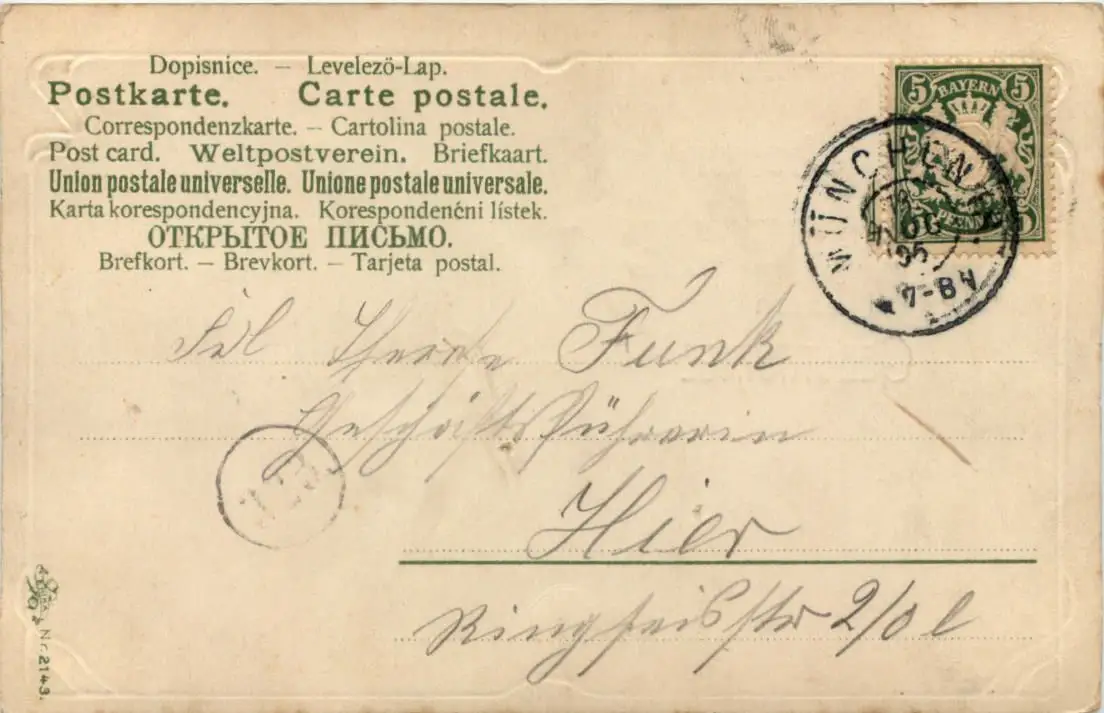 Dopisnice. — Levelezö-Lap.
Postkarte. Carte postale.
Correspondenzkarte. — Cartolina postale.
Post card. Weltpostverein. Briefkaart.
Union postale universelle. Unione postale universale.
Karta korespondencyjna. Korespondenčni lístek.
ОТКРЫТОЕ ПИСЬМО.
Brefkort. — Brevkort. — Tarjeta postal.
5 BAYERN 5
MÜNCHEN
7-8
Frl Therese Funk
Geschäftsführerin
Hier
Ringseisstr 2/0 l
Nr. 2143.